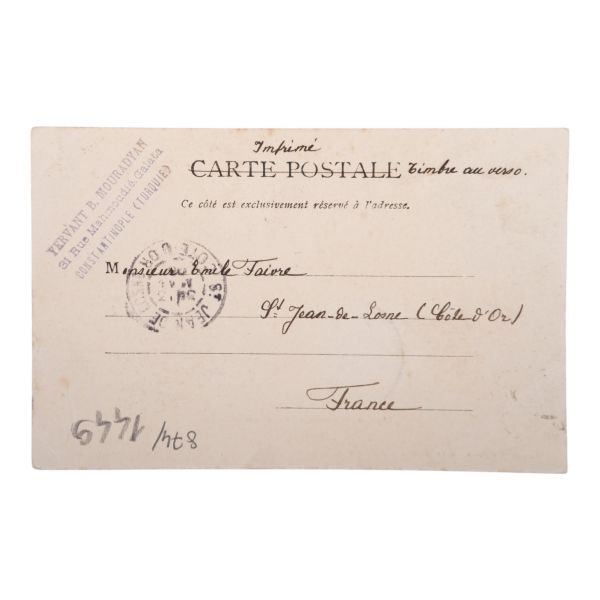 YERVANT B. MOURADYAN
31 Rue Mahmoudié, Galata
CONSTANTINOPLE (TURQUIE)
Imprimé
CARTE POSTALE Timbre au verso.
Ce côté est exclusivement réservé à l'adresse.
Monsieur Emile Faivre
St Jean-de-Losne (Côte d'Or)
France
ST JEAN DE
CÔTE D'OR
1449
874/